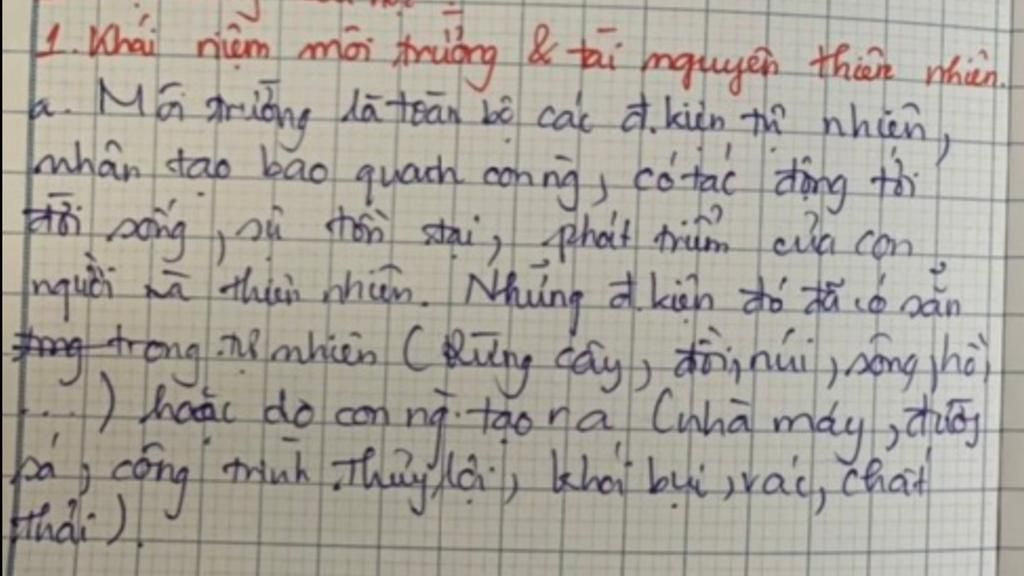 1. Khái niệm môi trường & tài nguyên thiên nhiên.
a. Môi trường là toàn bộ các đ.kiện tự nhiên,
nhân tạo bao quanh con ng, có tác động tới
đời sống, sự tồn tại, phát triển của con
người và thiên nhiên. Những đ.kiện đó đã có sẵn
trong tự nhiên (Rừng cây, đồi, núi, sông, hồ,
...) hoặc do con ng tạo ra (nhà máy, đường
xá, công trình thủy lợi, khói bụi, rác, chất
thải).